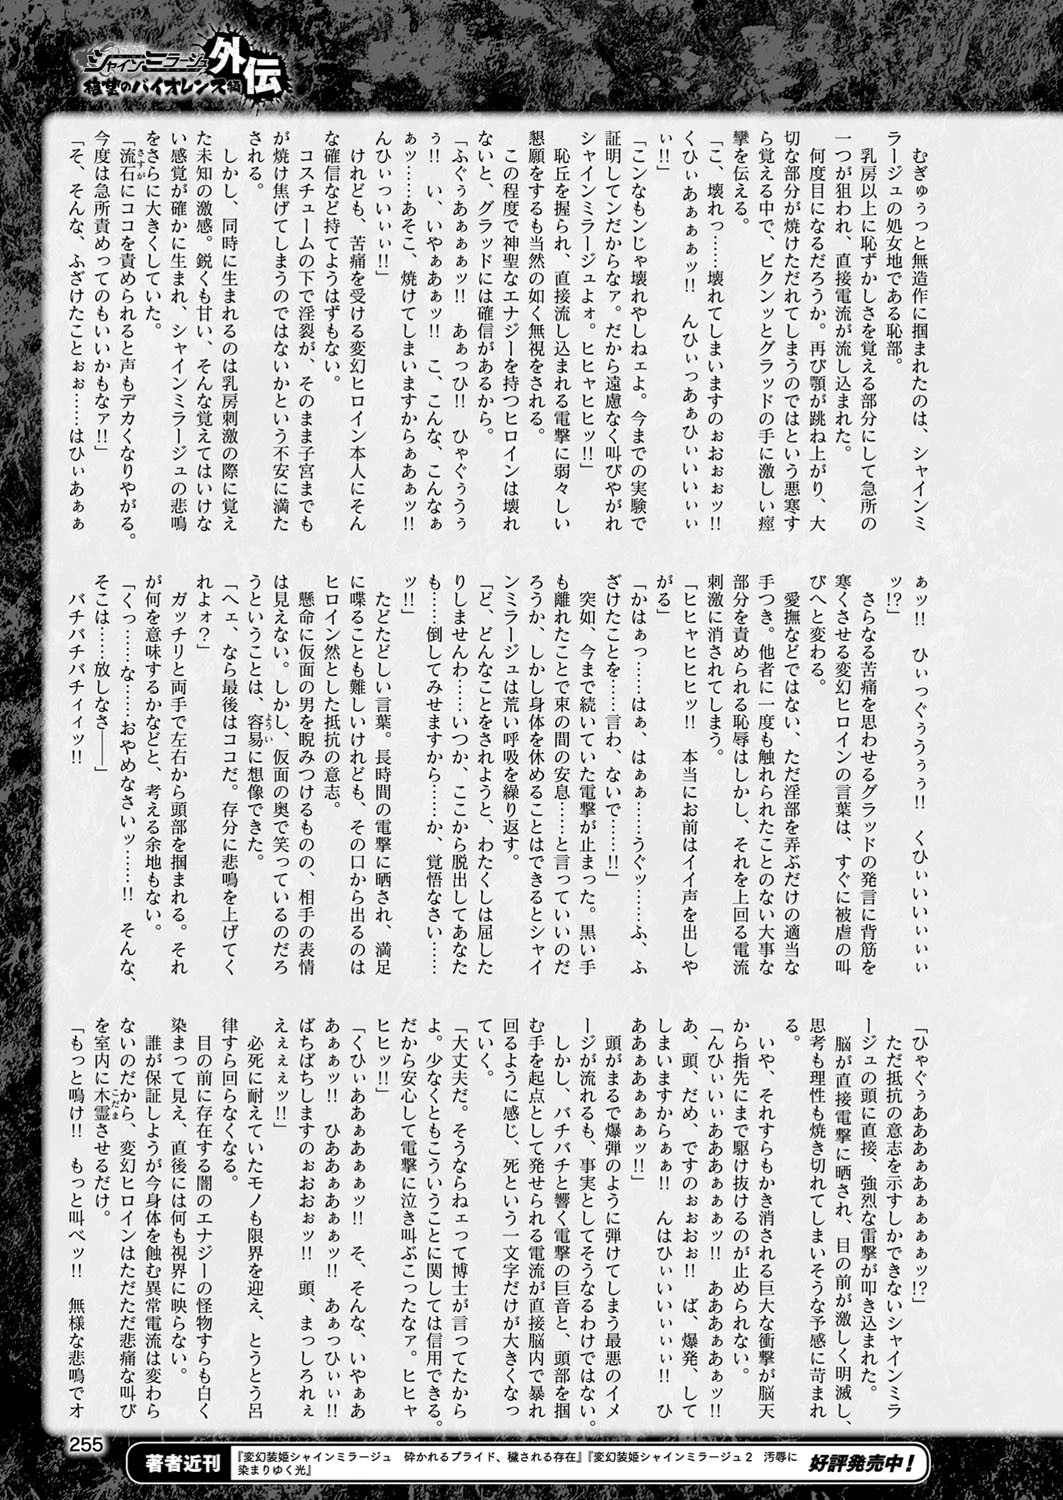 シャインミラージュ外伝
絶望のバイオレンス編
むぎゅぅっと無造作に掴まれたのは、シャインミ
ラージュの処女地である恥部。
乳房以上に恥ずかしさを覚える部分にして急所の
一つが狙われ、直接電流が流し込まれた。
何度目になるだろうか。再び顎が跳ね上がり、大
切な部分が焼けただれてしまうのではという悪寒す
ら覚える中で、ビクンッとグラッドの手に激しい痙
攣を伝える。
「こ、壊れっ……壊れてしまいますのぉおぉぉッ!!
くひぃあぁぁぁッ!! んひぃっあぁひぃいぃいぃ
ぃ!!」
「こンなもンじゃ壊れやしねェよ。今までの実験で
証明してンだからなァ。だから遠慮なく叫びやがれ
シャインミラージュよォ。ヒヒャヒヒッ!!」
恥丘を握られ、直接流し込まれる電撃に弱々しい
懇願をするも当然の如く無視をされる。
この程度で神聖なエナジーを持つヒロインは壊れ
ないと、グラッドには確信があるから。
「ふぐぅあぁぁぁッ!! あぁっひ!! ひゃぐぅうぅ
ぅ!! い、いやぁあぁッ!! こ、こんな、こんなぁ
ぁッ……あそこ、焼けてしまいますからぁあぁッ!!
んひぃっいぃぃ!!」
けれども、苦痛を受ける変幻ヒロイン本人にそん
な確信など持てようはずもない。
コスチュームの下で淫裂が、そのまま子宮までも
が焼け焦げてしまうのではないかという不安に満た
される。
しかし、同時に生まれるのは乳房刺激の際に覚え
た未知の激感。鋭くも甘い、そんな覚えてはいけな
い感覚が確かに生まれ、シャインミラージュの悲鳴
をさらに大きくしていた。
「流石にココを責められると声もデカくなりやがる。
今度は急所責めってのもいいかもなァ!!」
「そ、そんな、ふざけたことぉぉ……はひぃあぁぁ
ぁッ!! ひぃっぐぅうぅぅ!! くひぃいぃいぃぃ
ッ!?」
さらなる苦痛を思わせるグラッドの発言に背筋を
寒くさせる変幻ヒロインの言葉は、すぐに被虐の叫
びへと変わる。
愛撫などではない、ただ淫部を弄ぶだけの適当な
手つき。他者に一度も触れられたことのない大事な
部分を責められる恥辱はしかし、それを上回る電流
刺激に消されてしまう。
「ヒヒャヒヒヒッ!! 本当にお前はイイ声を出しや
がる」
「かはぁっ……はぁ、はぁぁ……うぐッ……ふ、ふ
ざけたことを……言わ、ないで……!!」
突如、今まで続いていた電撃が止まった。黒い手
も離れたことで束の間の安息……と言っていいのだ
ろうか、しかし身体を休めることはできるとシャイ
ンミラージュは荒い呼吸を繰り返す。
「ど、どんなことをされようと、わたくしは屈した
りしませんわ……いつか、ここから脱出してあなた
も……倒してみせますから……か、覚悟なさい……
ッ!!」
たどたどしい言葉。長時間の電撃に晒され、満足
に喋ることも難しいけれども、その口から出るのは
ヒロイン然とした抵抗の意志。
懸命に仮面の男を睨みつけるものの、相手の表情
は見えない。しかし、仮面の奥で笑っているのだろ
うということは、容易に想像できた。
「へェ、なら最後はココだ。存分に悲鳴を上げてく
れよォ?」
ガッチリと両手で左右から頭部を掴まれる。それ
が何を意味するかなどと、考える余地もない。
「くっ……な……おやめなさいッ……!! そんな、
そこは……放しなさ――」
バチバチバチィィッ!!
「ひゃぐぅあああぁあぁぁぁぁッ!?」
ただ抵抗の意志を示すしかできないシャインミラ
ージュの頭に直接、強烈な雷撃が叩き込まれた。
脳が直接電撃に晒され、目の前が激しく明滅し、
思考も理性も焼き切れてしまいそうな予感に苛まれ
る。
いや、それすらもかき消される巨大な衝撃が脳天
から指先にまで駆け抜けるのが止められない。
「んひぃいぃいあああぁぁぁッ!! あああぁあぁッ!!
あ、頭、だめ、ですのぉぉぉぉ!! ば、爆発、して
しまいますからぁぁ!! んはひぃいぃいぃぃ!! ひ
ああぁあぁぁぁぁッ!!」
頭がまるで爆弾のように弾けてしまう最悪のイメ
ージが流れるも、事実としてそうなるわけではない。
しかし、バチバチと響く電撃の巨音と、頭部を掴
む手を起点として発せられる電流が直接脳内で暴れ
回るように感じ、死という一文字だけが大きくなっ
ていく。
「大丈夫だ。そうならねェって博士が言ってたから
よ。少なくともこういうことに関しては信用できる。
だから安心して電撃に泣き叫ぶこったなァ。ヒヒャ
ヒヒッ!!」
「くひぃああぁあぁぁッ!! そ、そんな、いやぁあ
あぁぁッ!! ひああぁあぁぁッ!! あぁっひぃぃ!!
ばちばちしますのぉおおぉッ!! 頭、まっしろれぇ
えぇぇぇッ!!」
必死に耐えていたモノも限界を迎え、とうとう呂
律すら回らなくなる。
目の前に存在する闇のエナジーの怪物すらも白く
染まって見え、直後には何も視界に映らない。
誰が保証しようが今身体を蝕む異常電流は変わら
ないのだから、変幻ヒロインはただただ悲痛な叫び
を室内に木霊させるだけ。
「もっと鳴け!! もっと叫べッ!! 無様な悲鳴でオ
255
著者近刊
『変幻装姫シャインミラージュ 砕かれるプライド、穢される存在』『変幻装姫シャインミラージュ2 汚辱に
染まりゆく光』
好評発売中!